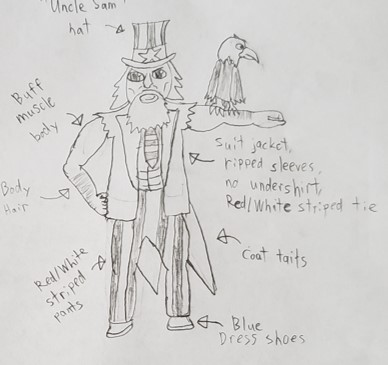 "Uncle Sam"
hat
Buff
muscle
body
Body
Hair
Suit jacket,
ripped sleeves,
no undershirt,
Red/White striped tie
Coat tails
Red/White
striped
pants
Blue
Dress shoes